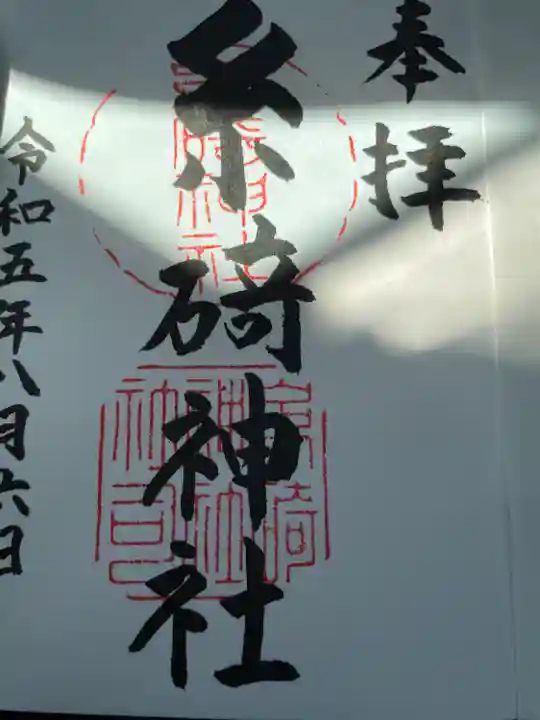 奉拝
糸碕神社
令和五年八月六日